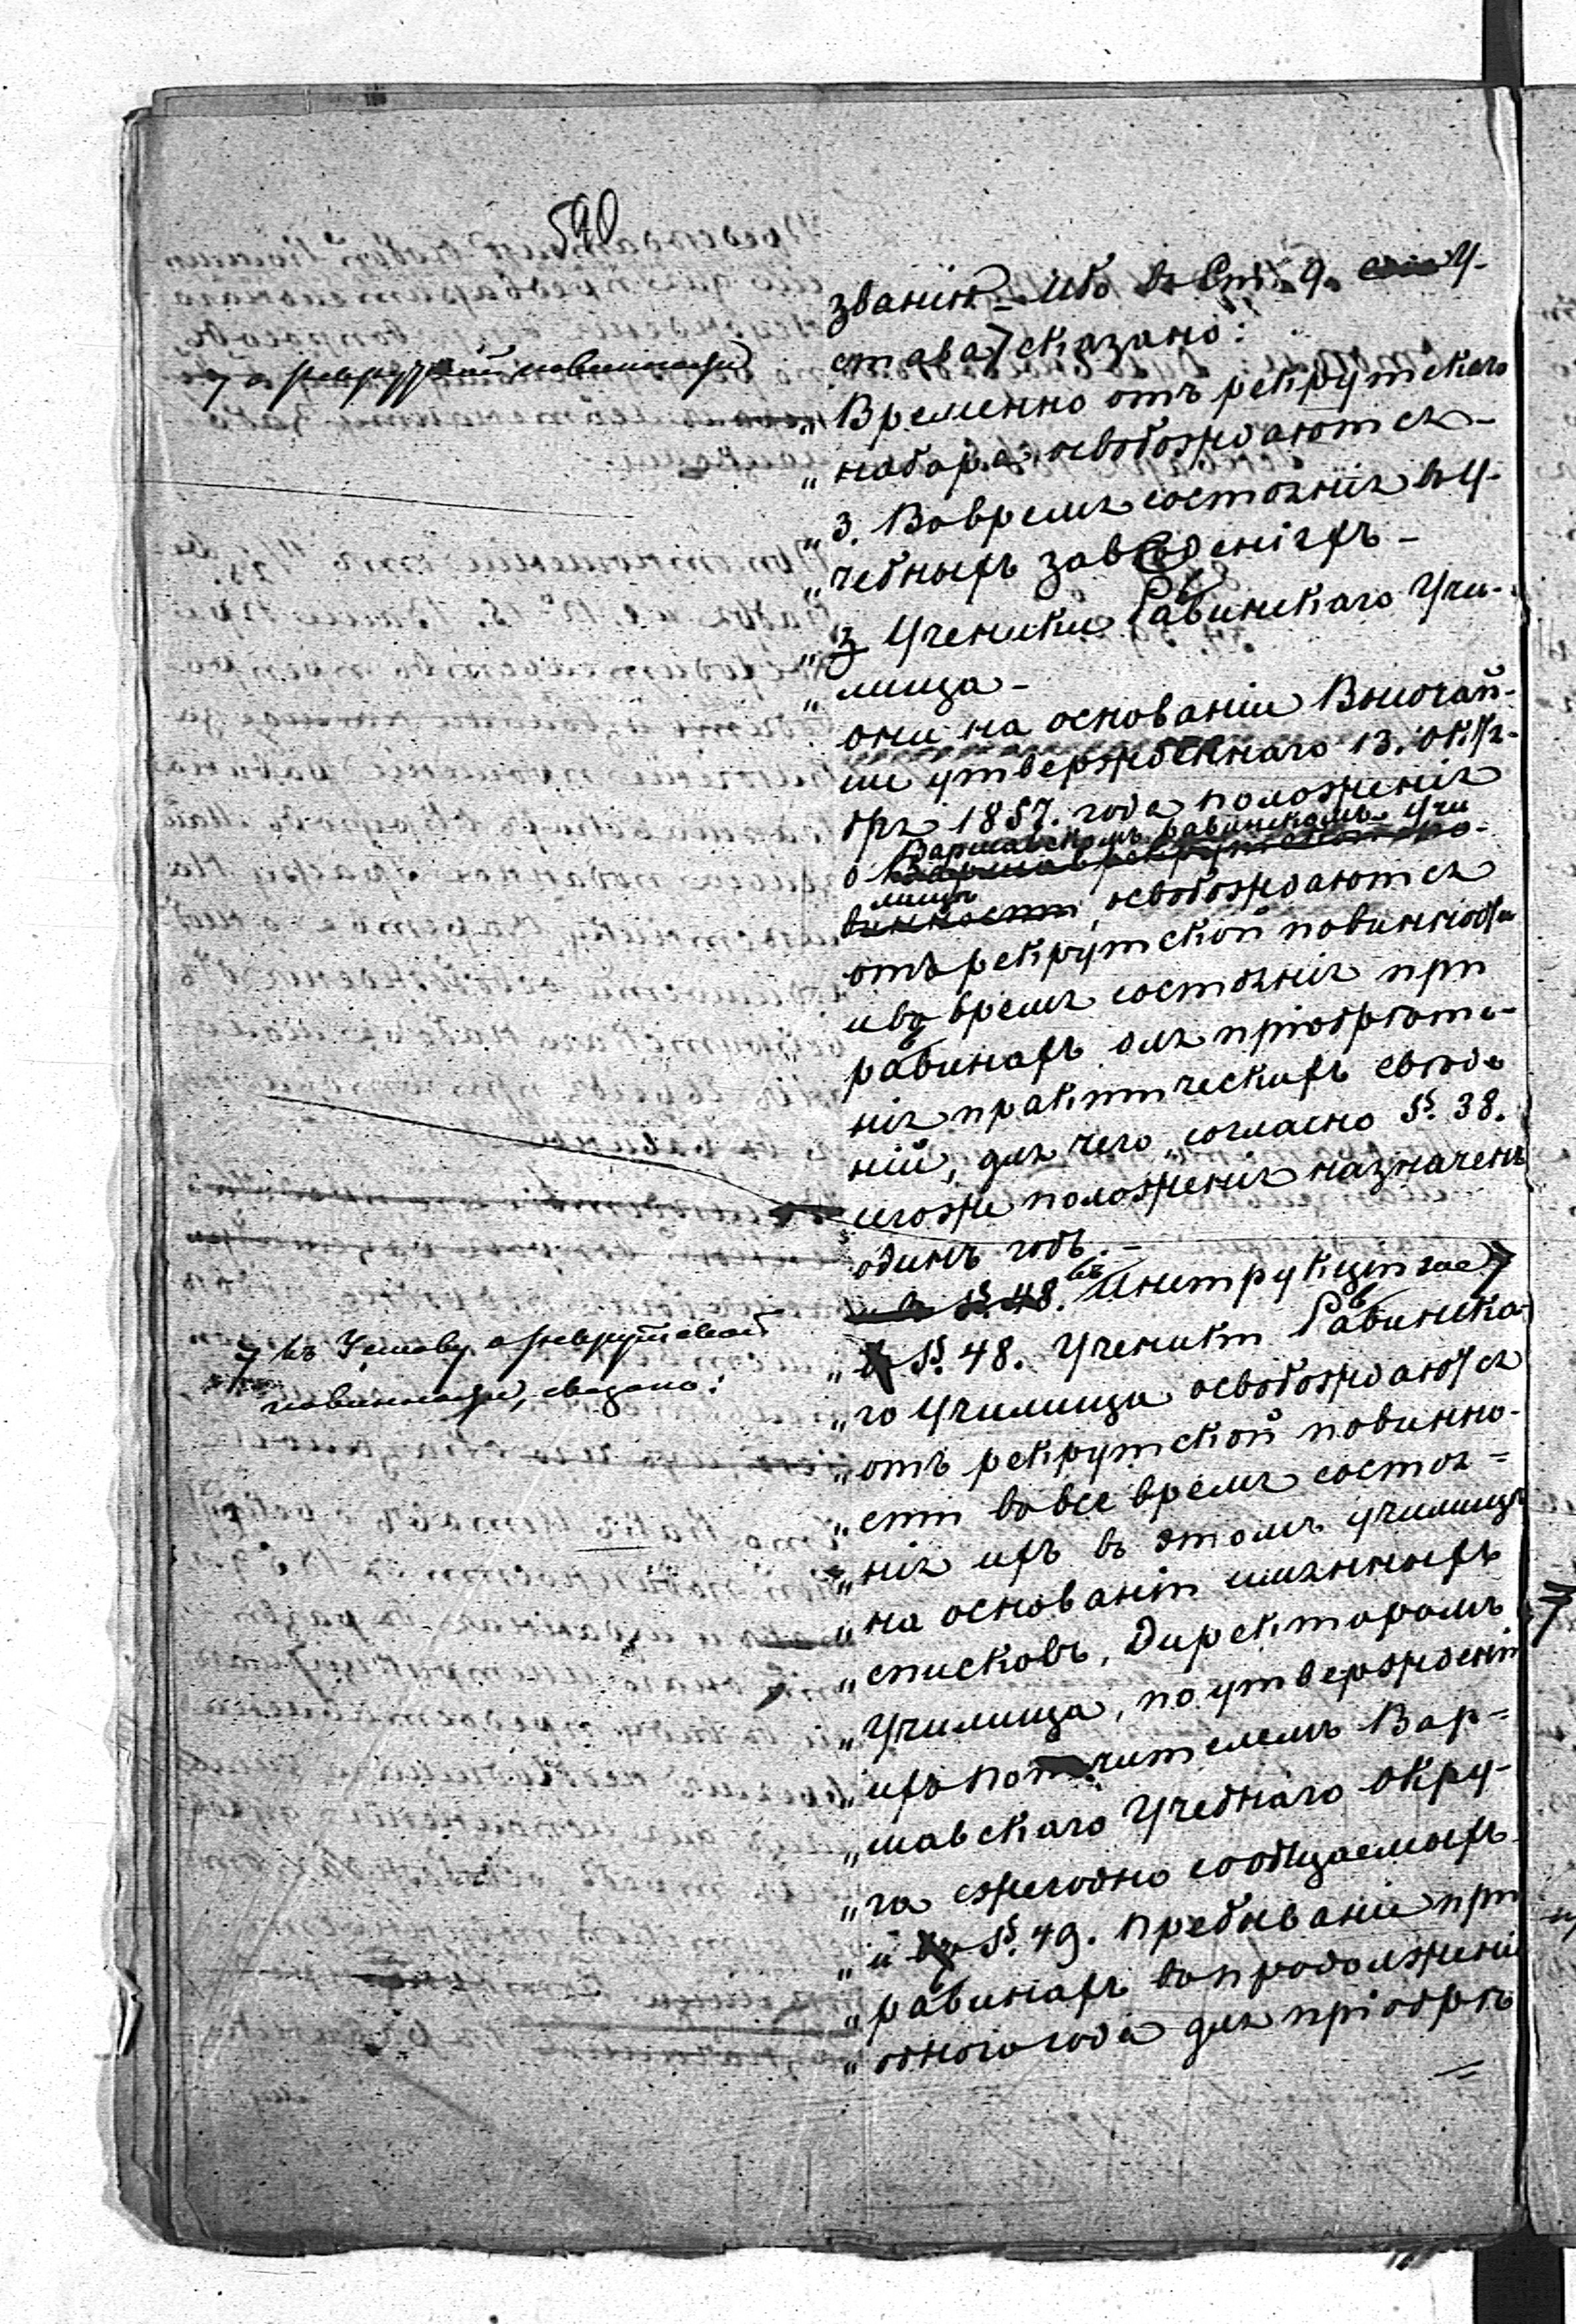 590
званія – ибо въ Ст. 9. У-
става 7 сказано:
7 о рекрутской повинности
„Временно отъ рекрутскаго
„набора освобождаются –
„3. Вовремя состоянія въ У-
„чебныхъ заведеніяхъ –
„з Ученики Равинскаго Учи-
„лища –
они на основаніи Высочай-
ше утвержденнаго 13. Октя-
бря 1857. года положенія
о Варшавскомъ равинскомъ учи
лищѣ, освобождаются
отъ рекрутской повинности
и во время состоянія при
равинахъ для пріобрѣте-
нія практическихъ свѣде
ній, для чего согласно §. 38.
тогоже положенія назначенъ
одинъ годъ. –
въ Инструкціи же 7
7 къ Уставу о рекрутской
повинности, сказано:
„§. 48. Ученики Равинска-
„го Училища освобождаются
„отъ рекрутской повинно-
„сти вовсе время состоя-
„нія ихъ въ этомъ училищѣ
„на основаніи имянныхъ
„списковъ, Директоромъ
„Училища, по утвержденіи
„ихъ попечителемъ Вар-
„шавскаго Учебнаго Окру-
„га ежегодно сообщаемыхъ
„и §. 49. Пребываніе при
„равинахъ впродолженіи
„одного года для пріобрѣ